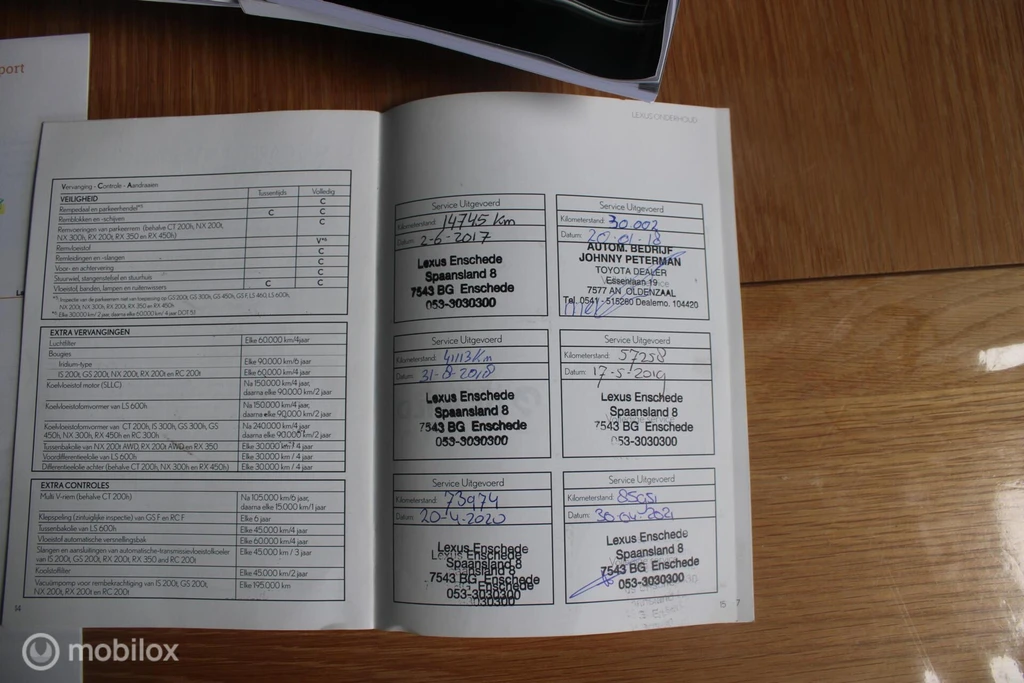 port
LEXUS ONDERHOUD
Vervanging - Controle - Aandraaien
VEILIGHEID Tussentijds Volledig
Rempedaal en parkeerhendel C
Remblokken en -schijven C C
Remvoeringen van parkeerrem (behalve CT 200h, NX 200t,
NX 300h, RX 200t, RX 350 en RX 450h) C
Remvloeistof V*⁶
Remleidingen en -slangen C
Voor- en achtervering C
Stuurwiel, stangenstelsel en stuurhuis C
Vloeistof, banden, lampen en ruitenwissers C C
EXTRA VERVANGINGEN
Luchtfilter Elke 60.000 km/4jaar
Bougies
Iridium-type Elke 90.000 km/6 jaar
IS 200t, GS 200t, NX 200t, RX 200t en RC 200t Elke 60.000 km/4 jaar
Koelvloeistof motor (SLLC) Na 150.000 km/4 jaar,
daarna elke 90.000 km/2 jaar
Koelvloeistofomvormer van LS 600h Na 150.000 km/4 jaar,
daarna elke 90.000 km/2 jaar
Koelvloeistofomvormer van CT 200h, IS 300h, GS 300h, GS
450h, NX 300h, RX 450h en RC 300h Na 240.000 km/4 jaar
daarna elke 90.000 km/2 jaar
Tussenbakolie van NX 200t AWD, RX 200t AWD en RX 350 Elke 30.000 km / 4 jaar
Voordifferentieelolie van LS 600h Elke 30.000 km / 4 jaar
Differentieelolie achter (behalve CT 200h, NX 300h en RX 450h) Elke 30.000 km / 4 jaar
EXTRA CONTROLES
Multi V-riem (behalve CT 200h) Na 105.000 km/6 jaar,
daarna elke 15.000 km/1 jaar
Klepspeling (zintuiglijke inspectie) van GS F en RC F Elke 6 jaar
Tussenbakolie van LS 600h Elke 45.000 km/4 jaar
Vloeistof automatische versnellingsbak Elke 60.000 km/4 jaar
Slangen en aansluitingen van automatische-transmissievloeistofkoeler
van IS 200t, GS 200t, RX 200t, RX 350 and RC 200t Elke 45.000 km / 3 jaar
Koolstoffilter Elke 45.000 km/2 jaar
Vacuümpomp voor rembekrachtiging van IS 200t, GS 200t,
NX 200t, RX 200t en RC 200t Elke 195.000 km
14
Service Uitgevoerd
Kilometerstand: 14745 Km
Datum: 2-6-2017
Lexus Enschede
Spaansland 8
7543 BG Enschede
053-3030300
Service Uitgevoerd
Kilometerstand: 30.002
Datum: 20-01-18
AUTOM. BEDRIJF
JOHNNY PETERMAN
TOYOTA DEALER
Essenlaan 19
7577 AN OLDENZAAL
Tel. 0541 - 515260 Dealerno. 104420
Service Uitgevoerd
Kilometerstand: 41113 Km
Datum: 31-8-2018
Lexus Enschede
Spaansland 8
7543 BG Enschede
053-3030300
Service Uitgevoerd
Kilometerstand: 57258
Datum: 17-5-2019
Lexus Enschede
Spaansland 8
7543 BG Enschede
053-3030300
Service Uitgevoerd
Kilometerstand: 73974
Datum: 20-4-2020
Lexus Enschede
Spaansland 8
7543 BG Enschede
053-3030300
Service Uitgevoerd
Kilometerstand: 85051
Datum: 30-04-2021
Lexus Enschede
Spaansland 8
7543 BG Enschede
053-3030300
15 7
mobilox